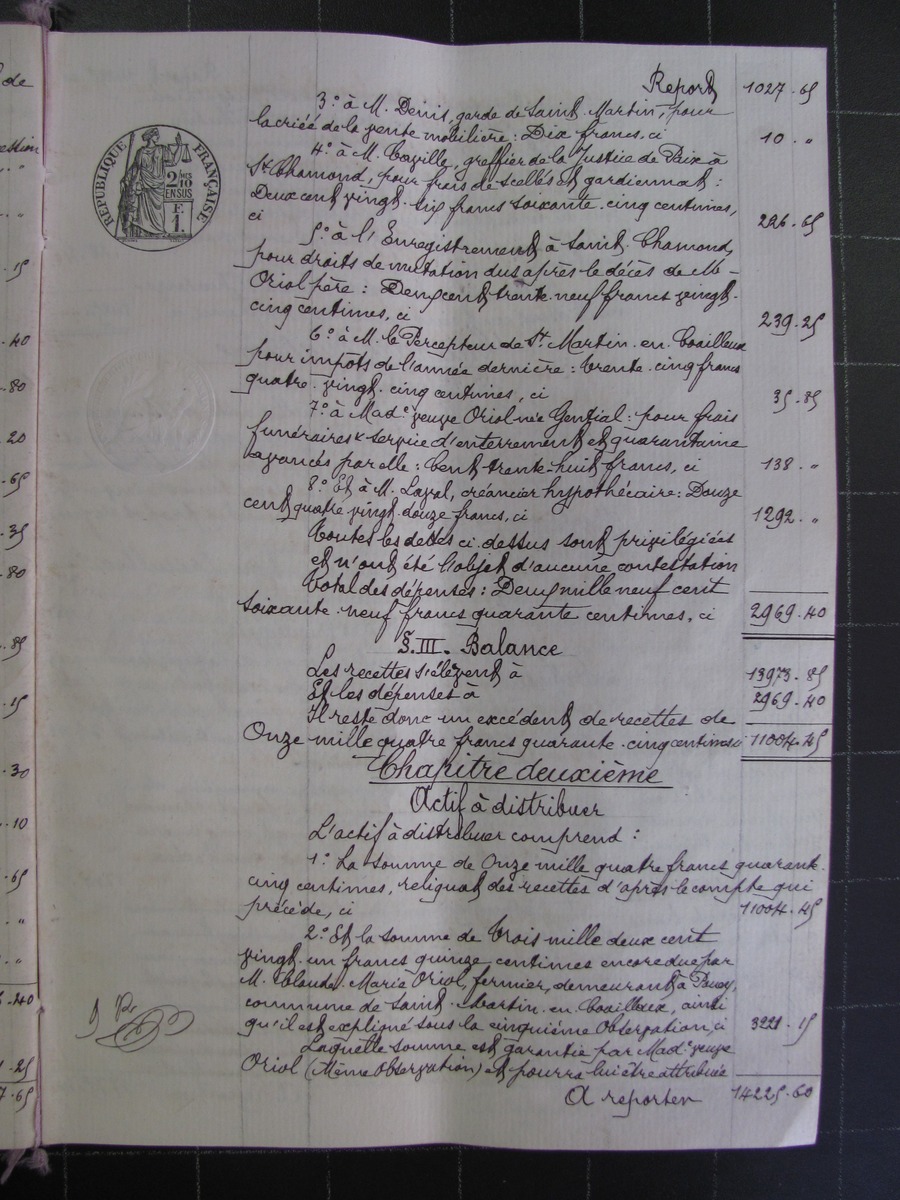 Report 1027.65
3° à M. Denis, garde de Saint-Martin, pour
la criée de la vente mobilière : Dix francs, ci 10 . "
4° à M. Coville, greffier de la Justice de Paix à
St Chamond, pour frais de scellés et gardiennat :
Deux cent vingt-six francs soixante-cinq centimes,
ci 226.65
5° à l'Enregistrement à Saint-Chamond,
pour droits de mutation dus après le décès de M-
Oriol père : Deux cent trente-neuf francs vingt-
cinq centimes, ci 239.25
6° à M. le Percepteur de St Martin-en-Coailleux
pour impôts de l'année dernière : Trente-cinq francs
quatre-vingt-cinq centimes, ci 35.85
7° à Made veuve Oriol née Gential : pour frais
funéraires & service d'enterrement et quarantaine
avancés par elle : Cent trente-huit francs, ci 138 . "
8° Et à M. Layal, créancier hypothécaire : Douze
cent quatre-vingt-douze francs, ci 1292 . "
Toutes les dettes ci-dessus sont privilégiées
et n'ont été l'objet d'aucune contestation
Total des dépenses : Deux mille neuf cent
soixante-neuf francs quarante centimes, ci 2969.40
§. III. Balance
Les recettes s'élèvent à 13973.85
Et les dépenses à 2969.40
Il reste donc un excédent de recettes de
Onze mille quatre francs quarante-cinq centimes ci 11004.45
Chapitre deuxième
Actif à distribuer
L'actif à distribuer comprend :
1° La somme de Onze mille quatre francs quarante-
cinq centimes, reliquat des recettes d'après le compte qui
précède, ci 11004.45
2° Et la somme de Trois mille deux cent
vingt-un francs quinze centimes encore due par
M. Claude-Marie Oriol, fermier, demeurant à
commune de Saint-Martin-en-Coailleux, ainsi
qu'il est expliqué sous la cinquième Observation, ci 3221.15
Laquelle somme est garantie par Made veuve
Oriol (Même Observation) et pourra lui être attribuée
A reporter 14225.60
RÉPUBLIQUE FRANÇAISE
2/10
EN SUS
F.
1.
de
"
"
.15
.40
.80
.20
.65
.35
.80
.85
.15
.30
.10
.65
"
"
.40
.25
.65